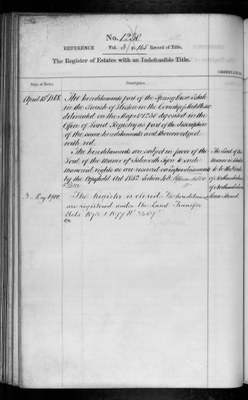 No. 1230
REFERENCE Vol. 3 Record of Title.
The Register of Estates with an Indefeasible Title.
Date of Entry. Description.
April 1868. The hereditaments part of the Spring Grove Estate
in the Parish of Heston in the County of Middlesex
delineated on the Map No 1230 deposited in the
Office of Land Registry as part of the description
of the same hereditaments and thereon edged
with red.
The hereditaments are subject in favor of the
Lord of the Manor of Isleworth Syon to such
manorial rights as are reserved on enfranchisements
by the Copyhold Act 1852 Section 48.
3 May 1900. The register is closed. The hereditaments
are registered under the Land Transfer
Acts 1875 & 1897
The Lord of the
Manor
to be the Duke
of Northumberland